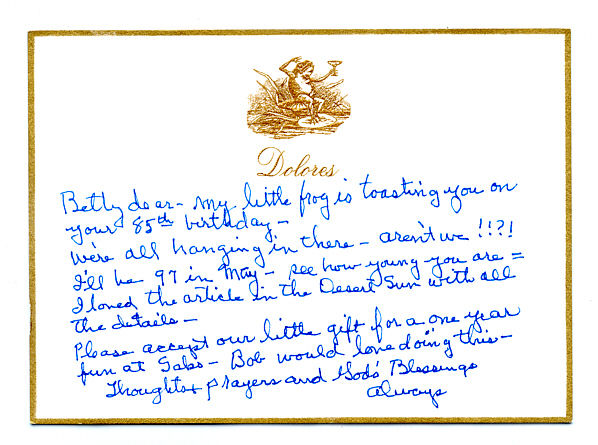 Dolores
Betty dear - my little frog is toasting you on
your 85th birthday -
We're all hanging in there - aren't we!!?!
I'll be 97 in May - see how young you are =
I loved the article in the Desert Sun with all
the details -
Please accept our little gift for a one year
fun at Saks - Bob would love doing this -
Thoughts + prayers and God's Blessings
always